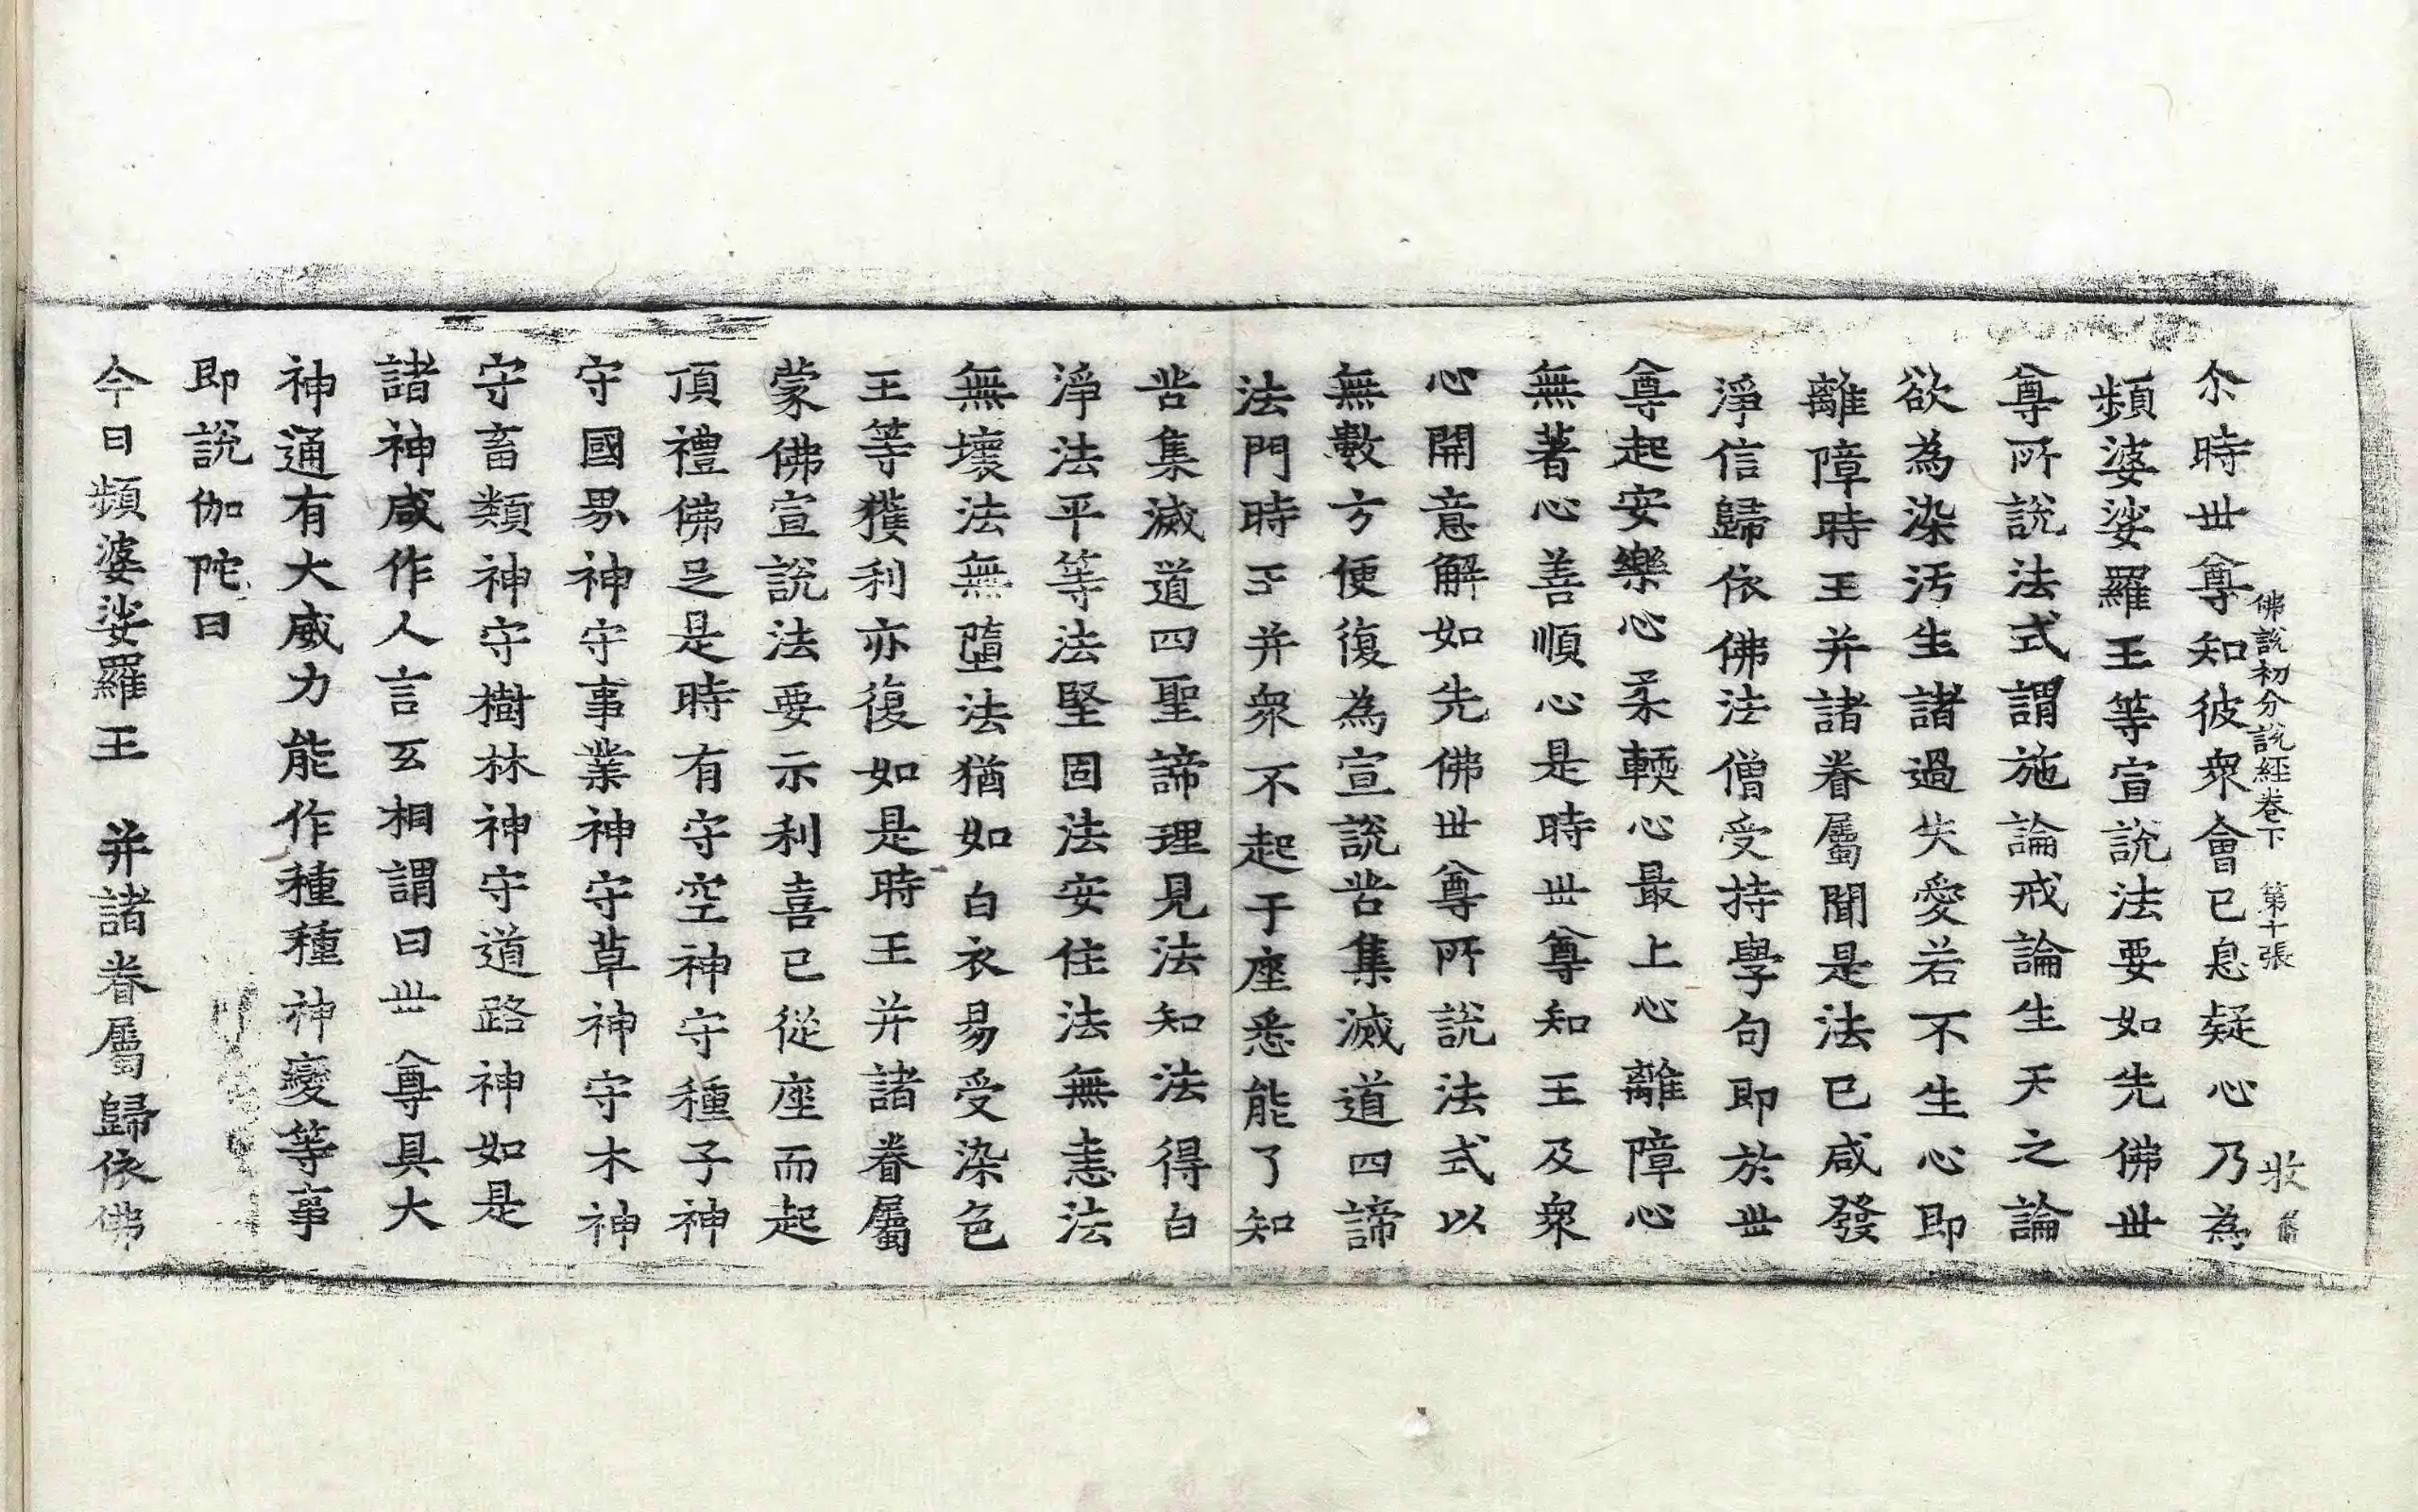 佛說初分說経卷下 第十張 牧
尒時丗尊知彼衆會已息疑心乃為
頻婆娑羅王等宣說法要如先佛丗
尊所說法式謂施論戒論生天之論
欲為染汚生諸過失愛若不生心即
離障時王并諸眷屬聞是法已咸發
淨信歸依佛法僧受持學句即於丗
尊起安樂心柔輭心最上心離障心
無著心善順心是時丗尊知王及衆
心開意解如先佛丗尊所說法式以
無數方便復為宣說苦集滅道四諦
法門時王并衆不起于座悉能了知
苦集滅道四聖諦理見法知法得白
淨法平等法堅固法安住法無恚法
無壞法無墮法猶如白衣易受染色
王等獲利亦復如是時王并諸眷屬
蒙佛宣說法要示利喜已從座而起
頂禮佛足是時有守空神守種子神
守國界神守事業神守草神守木神
守畜類神守樹林神守道路神如是
諸神咸作人言互相謂曰丗尊具大
神通有大威力能作種種神變等事
即說伽陀曰
今日頻婆娑羅王 并諸眷屬歸依佛